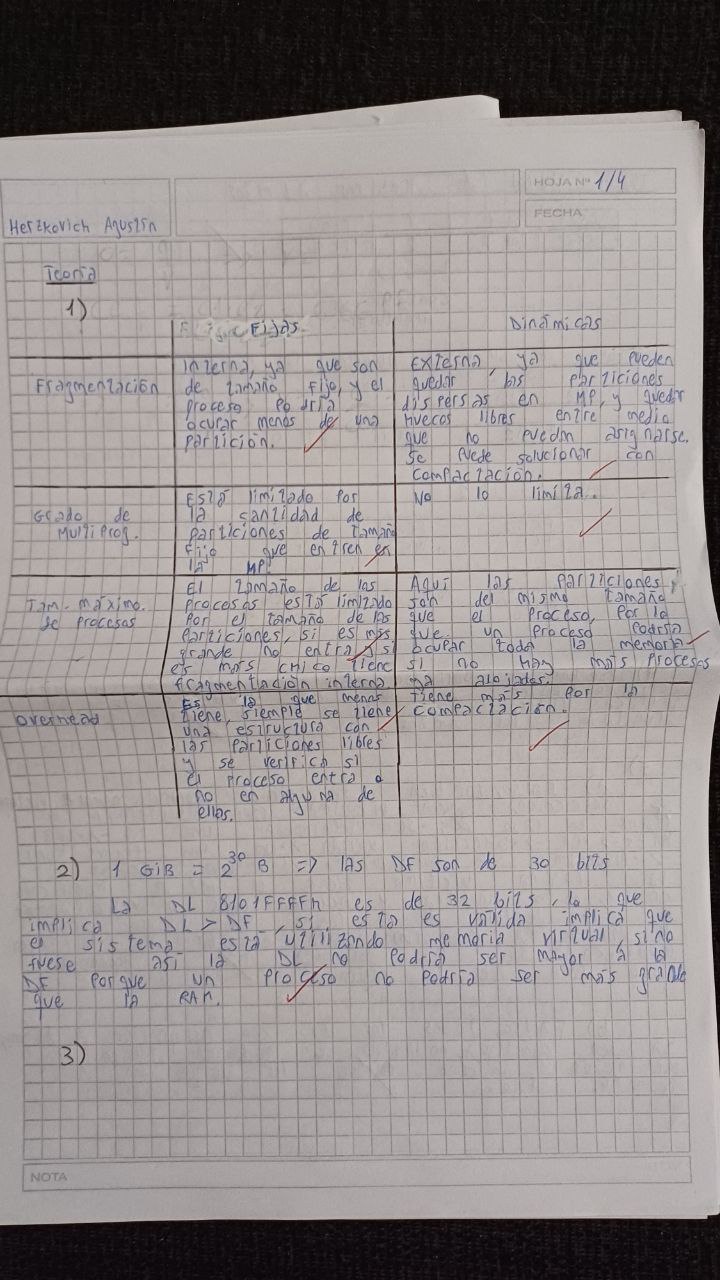 HOJA Nº 1/4
FECHA
Herzkovich Agustín
Teoría
1)
Fijas
Dinámicas
Fragmentación
Interna, ya que son
de tamaño fijo, y el
proceso podría
ocupar menos de una
partición.
Externa, ya que pueden
quedar las particiones
dispersas en MP, y quedar
huecos libres entre medio
que no puedan asignarse.
Se puede solucionar con
compactación.
Grado de
Multiprog.
Está limitado por
la cantidad de
particiones de tamaño
fijo que entren en
la MP.
No lo limita.
Tam. máximo
de procesos
El tamaño de los
procesos está limitado
por el tamaño de las
particiones, si es más
grande no entra y si
es más chico tiene
fragmentación interna.
Aquí las particiones
son del mismo tamaño
que el proceso, por lo
que un proceso podría
ocupar toda la memoria
si no hay más procesos
ya alojados.
Overhead
Es la que menos
tiene, siempre se tiene
una estructura con
las particiones libres
y se verifica si
el proceso entra o
no en alguna de
ellas.
Tiene más por la
compactación.
2) 1 GiB = 2^30 B => las DF son de 30 bits
La DL 8101FFFFh es de 32 bits, lo que
implica DL > DF, si esta es válida implica que
el sistema está utilizando memoria virtual, si no
fuese así la DL no podría ser mayor a la
DF porque un proceso no podría ser más grande
que la RAM.
3)
NOTA